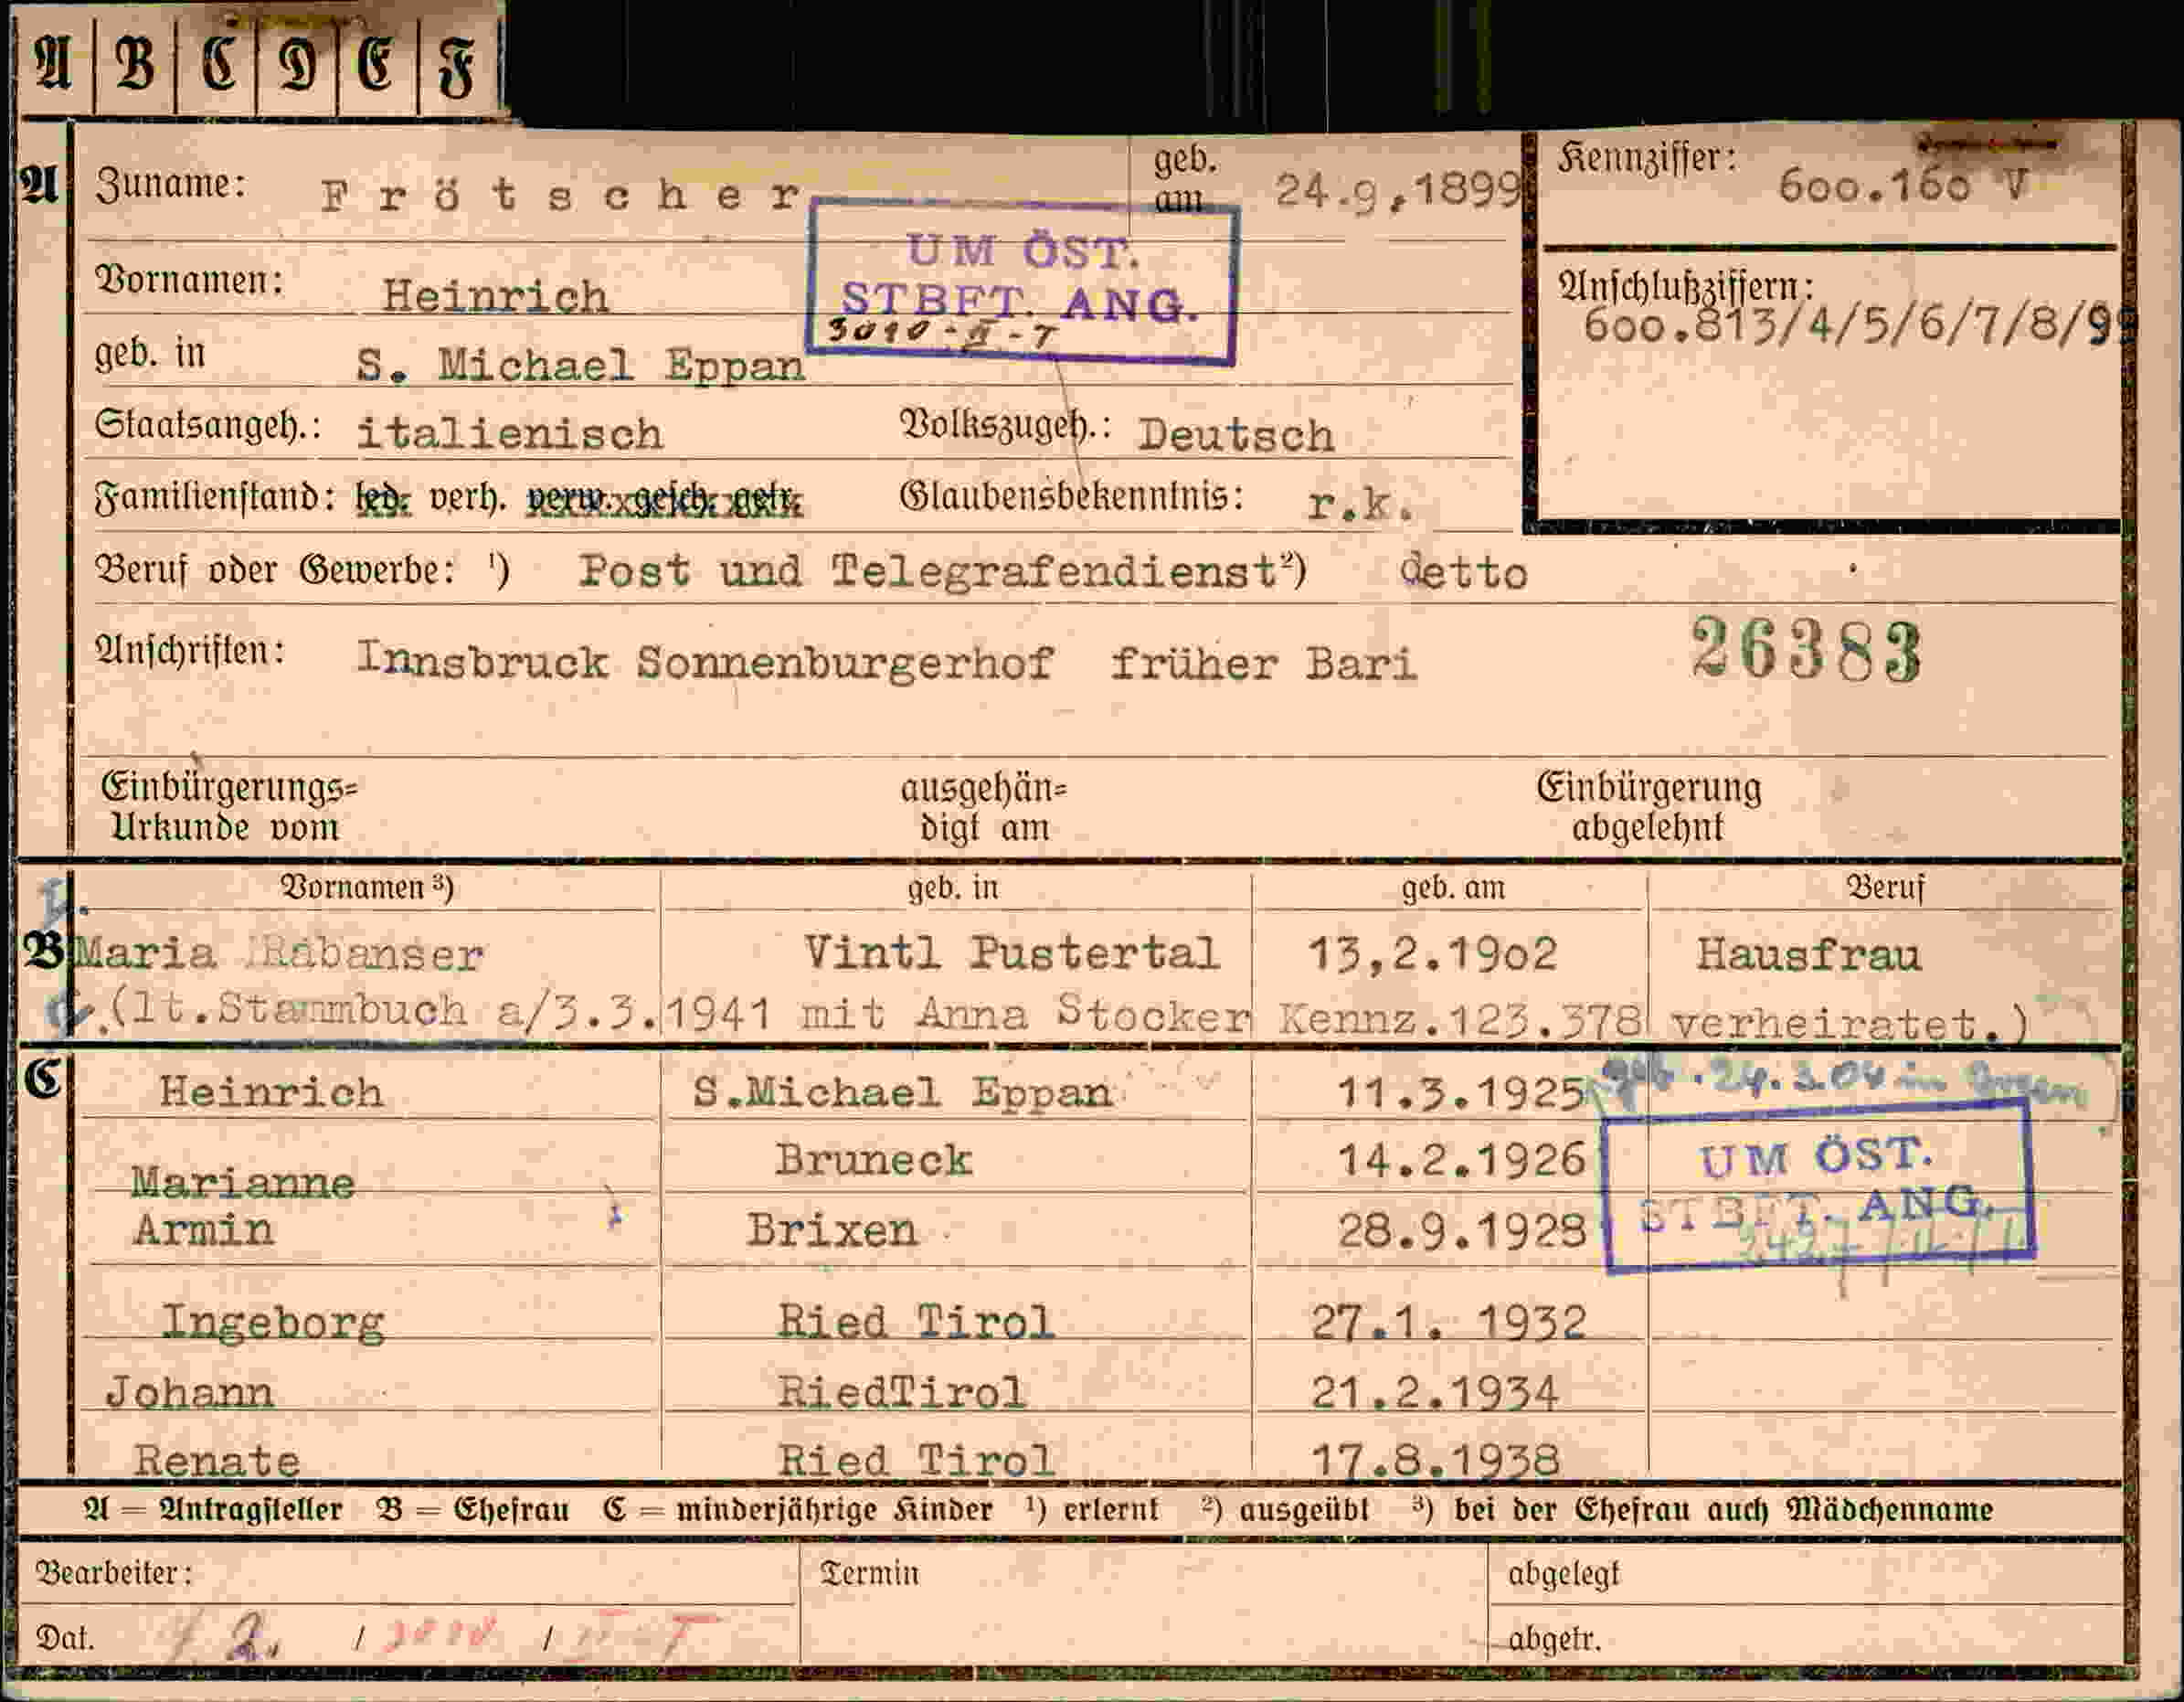 A B C D E F
A Zuname: Frötscher geb. am 24.9.1899 Kennziffer: 600.160 V
UM ÖST.
Vornamen: Heinrich STBFT. ANG. Anschlußziffern:
3010-II-T 600.813/4/5/6/7/8/9
geb. in S. Michael Eppan
Staatsangeh.: italienisch Volkszugeh.: Deutsch
Familienstand: led. verh. verw. gesch. getr. Glaubensbekenntnis: r.k.
Beruf oder Gewerbe: ¹) Post und Telegrafendienst ²) detto
Anschriften: Innsbruck Sonnenburgerhof früher Bari 26383
Einbürgerungs= ausgehän= Einbürgerung
Urkunde vom digt am abgelehnt
Vornamen ³) geb. in geb. am Beruf
B Maria Rabanser Vintl Pustertal 13,2.1902 Hausfrau
(lt.Stammbuch a/3.3.1941 mit Anna Stocker Kennz.123.378 verheiratet.)
C Heinrich S.Michael Eppan 11.3.1925 geb. 24.3.04 in
Marianne Bruneck 14.2.1926 UM ÖST.
Armin Brixen 28.9.1928 STBFT. ANG.
Ingeborg Ried Tirol 27.1. 1932
Johann RiedTirol 21.2.1934
Renate Ried Tirol 17.8.1938
A = Antragsteller B = Ehefrau C = minderjährige Kinder ¹) erlernt ²) ausgeübt ³) bei der Ehefrau auch Mädchenname
Bearbeiter: Termin abgelegt
Dat. 2. / / abgetr.